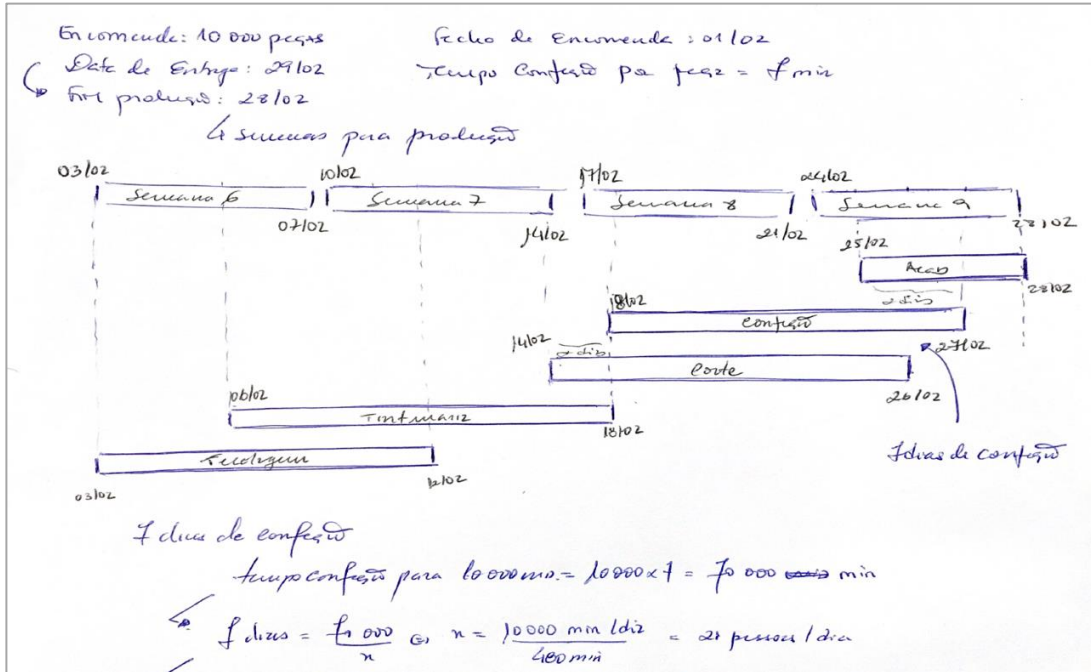 Encomenda: 10 000 peças
Fecho de Encomenda: 01/02
Data de Entrega: 29/02
Tempo Confeção por peça = 7 min
Fim produção: 28/02
4 semanas para produção
03/02
10/02
17/02
24/02
Semana 6
Semana 7
Semana 8
Semana 9
07/02
14/02
21/02
28/02
25/02
Acab
28/02
2 dias
18/02
Confeção
27/02
14/02
2 dias
Corte
26/02
06/02
Tinturaria
18/02
7 dias de confeção
Tecelagem
03/02
12/02
7 dias de confeção
tempo confeção para 10 000 = 10 000 x 7 = 70 000 min
7 dias = 70 000 / n n = 10 000 min / dia / 480 min = 21 pessoas / dia